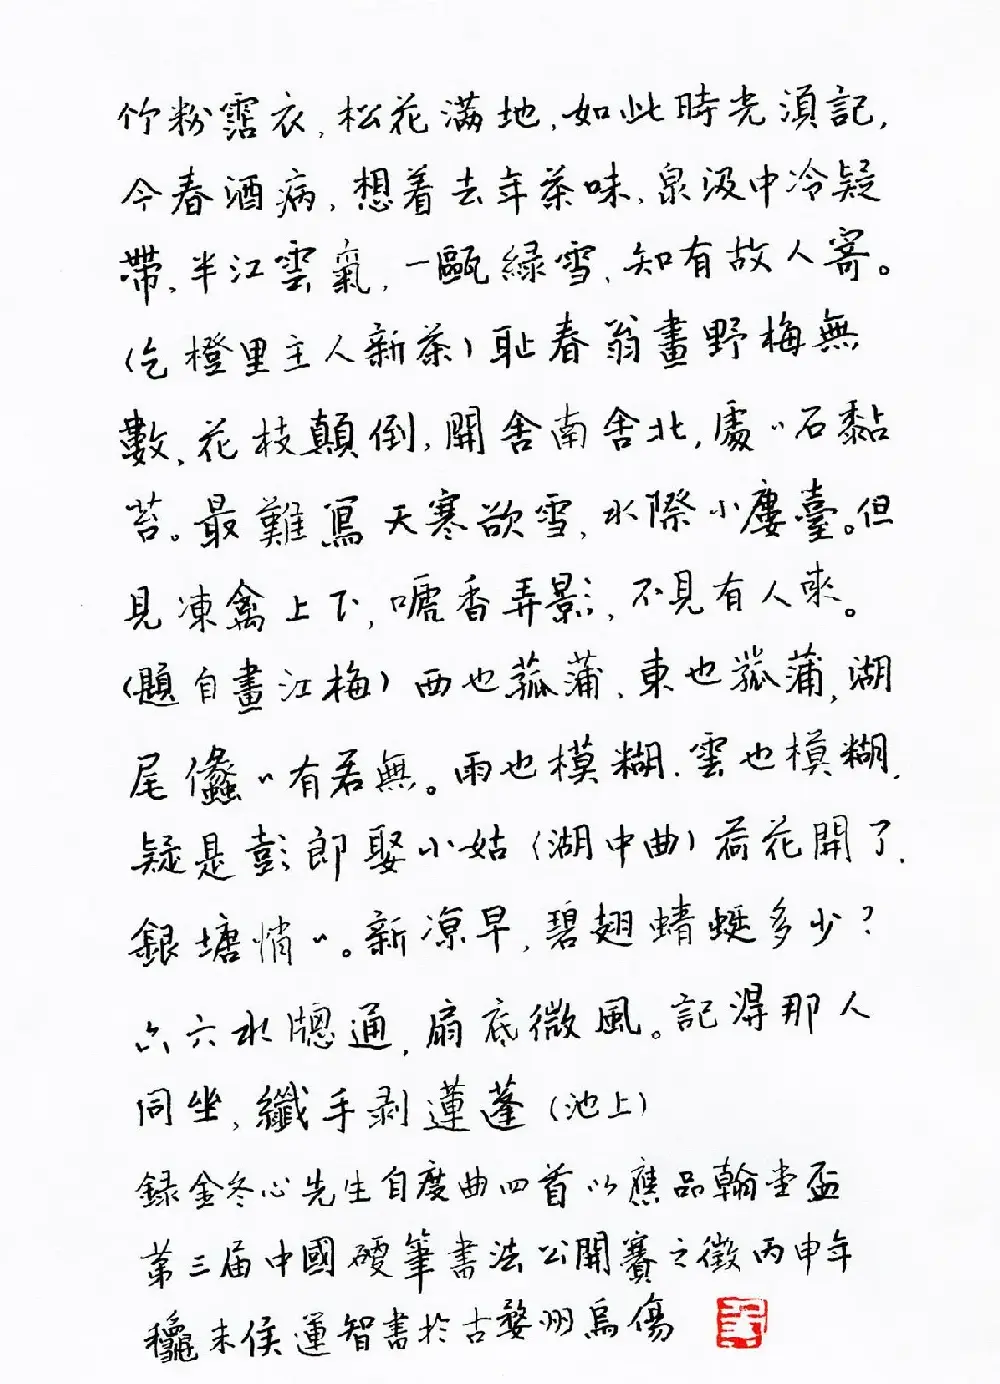 竹粉霑衣,松花满地,如此時光須記,
今春酒病,想着去年茶味,泉汲中泠疑
帶,半江雲氣,一甌緑雪,知有故人寄。
(乞橙里主人新茶)耻春翁畫野梅無
數,花枝顛倒,開舍南舍北,處〃石黏
苔。最難寫天寒欲雪,水際小廔臺。但
見凍禽上下,嘑香弄影,不見有人來。
(題自畫江梅)西也菰蒲,東也菰蒲,湖
尾儠〃有若無。雨也模糊,雲也模糊,
疑是彭郎娶小姑(湖中曲)荷花開了,
銀塘悄〃。新凉早,碧翅蜻蜓多少?
六六水窗通,扇底微風。記得那人
同坐,纖手剥蓮蓬(池上)
録金冬心先生自度曲四首以應品翰堂盃
第三届中國硬筆書法公開賽之徵丙申年
龝末侯運智書於古婺州烏傷